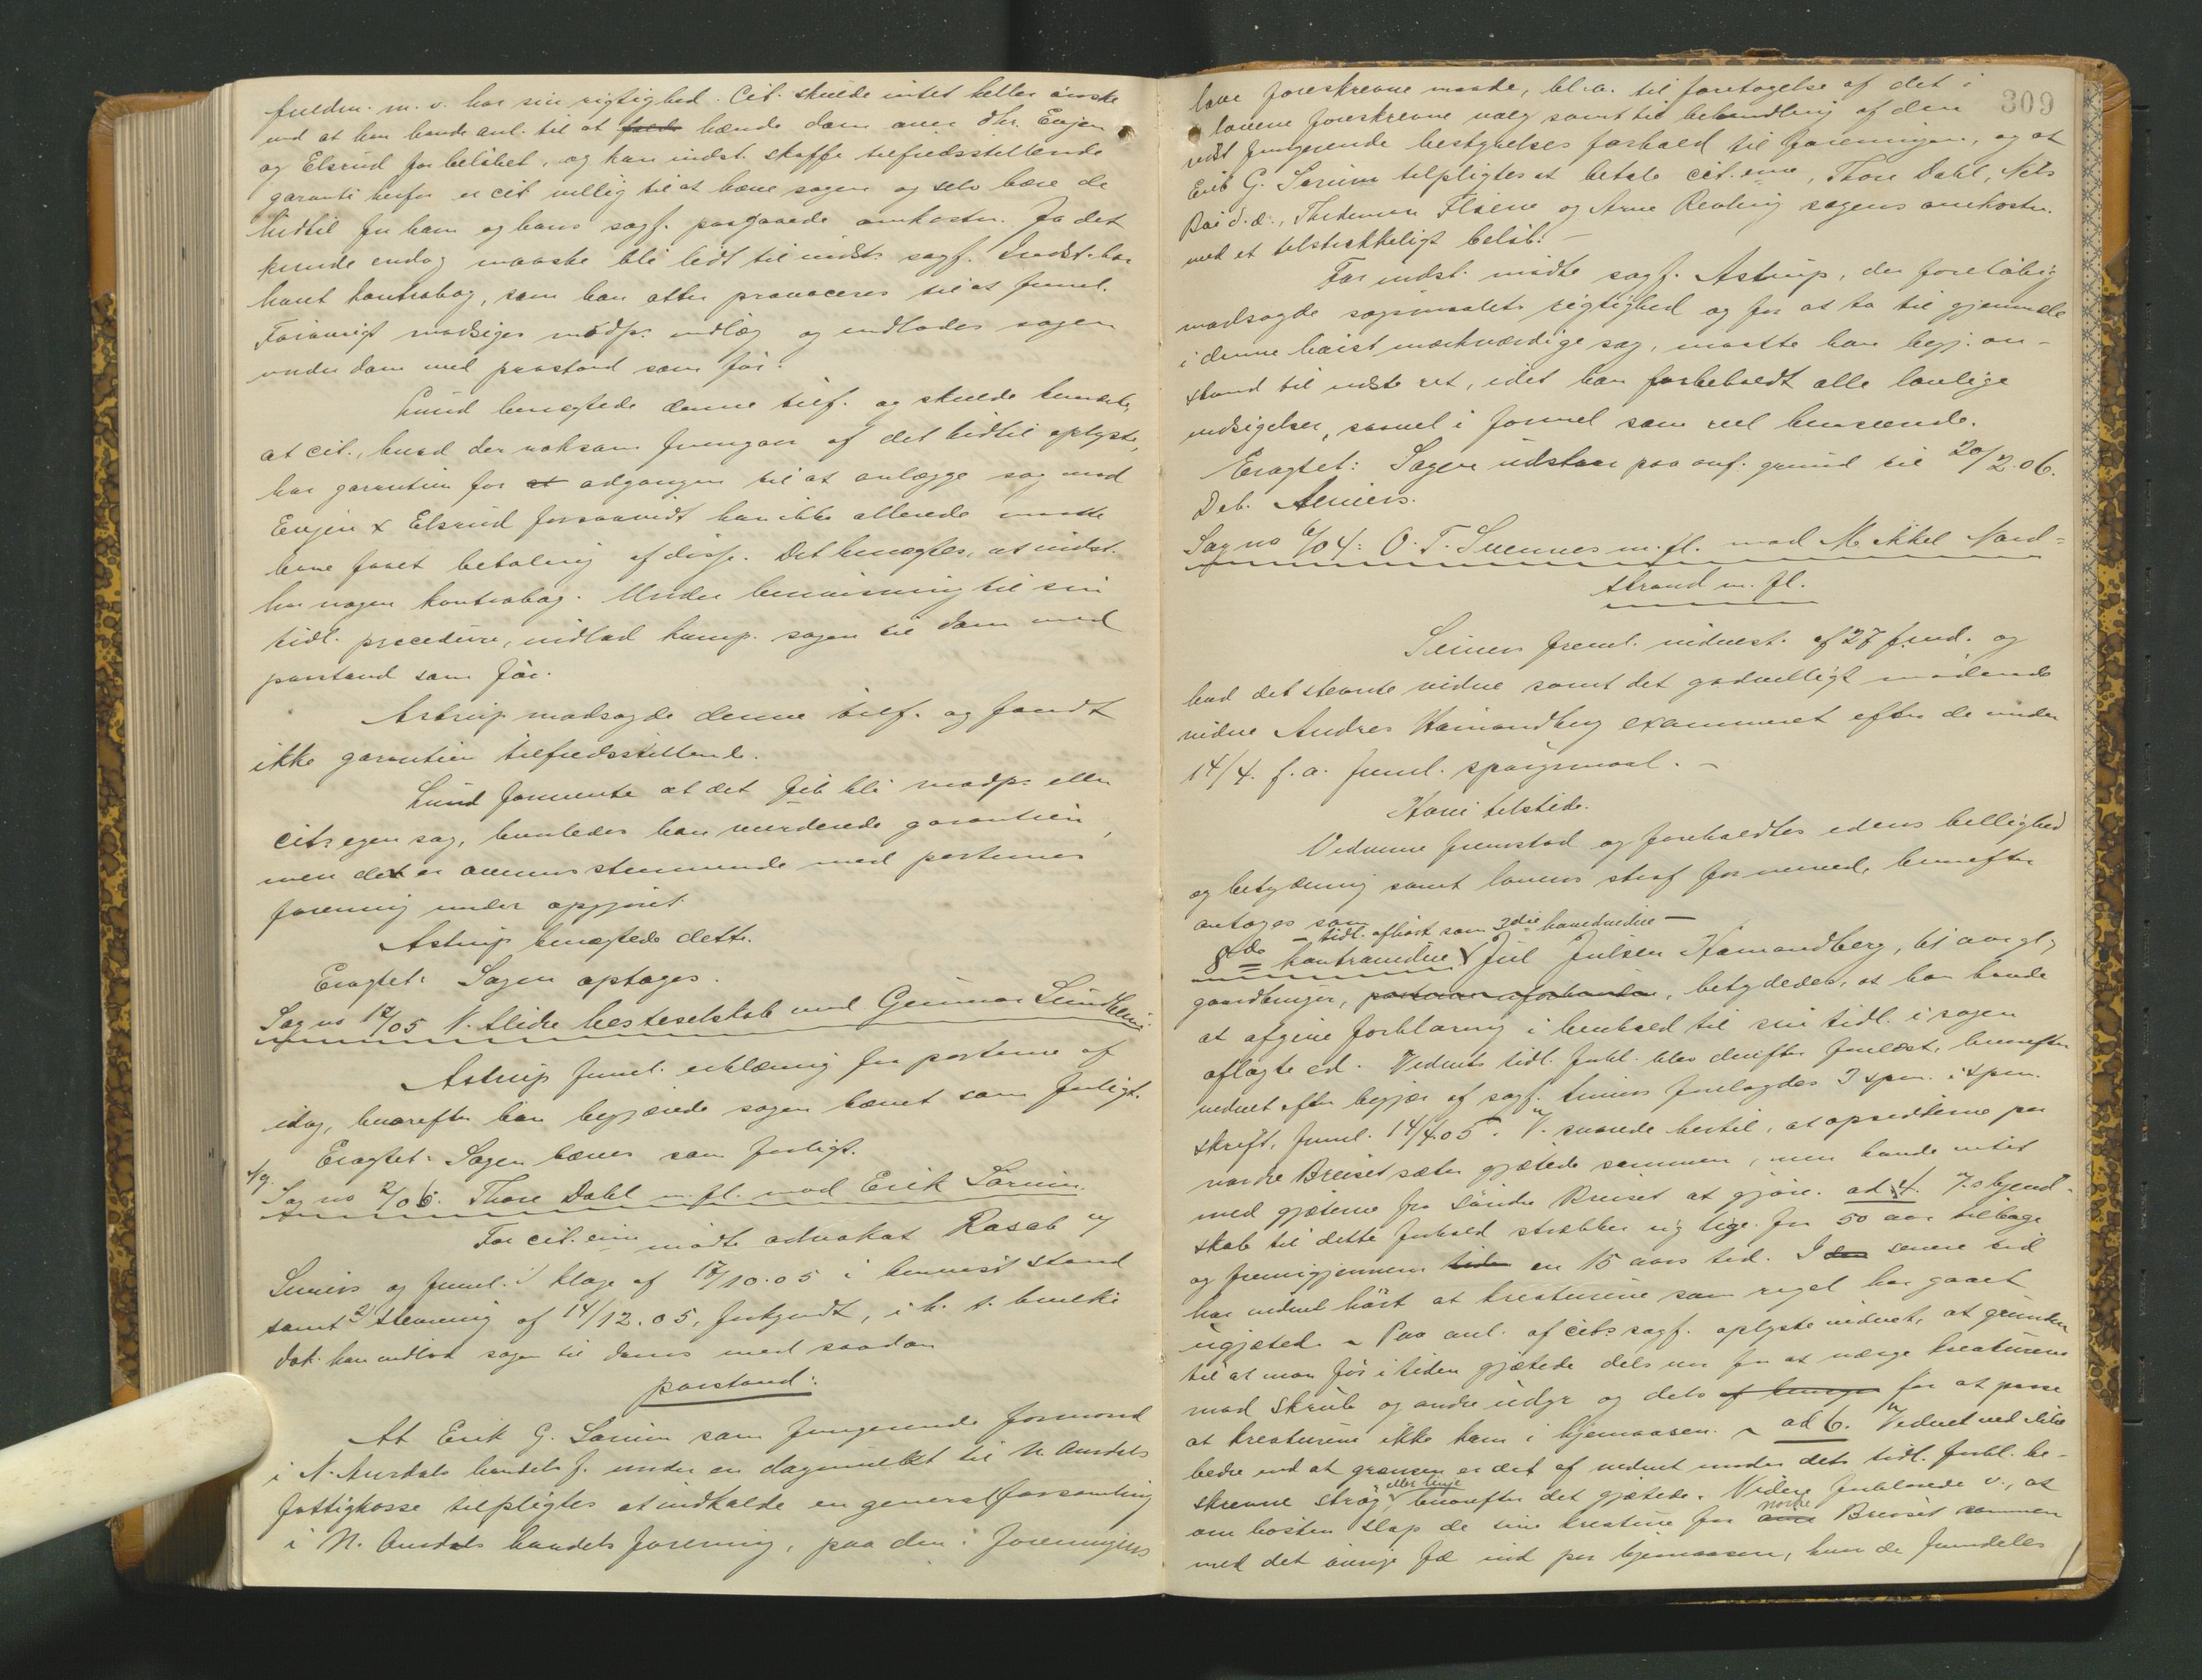 fuldm. m. v. har sin rigtighed. Cit. skulde intet heller ønske
end at han havde anl. til at hænde dom over dhr. Evjen
og Elsrud for beløbet, og kan indst. skaffe tilfredsstillende
garanti herfor er cit. villig til at hæve sagen og selv bære de
hidtil for ham og hans sagf. paagaaede omkostn. Ja det
kunde endog maaske bli lidt til indst. sagf. Indst. har
havt kontrabog, som han atter provoceres til at freml.
Forøvrigt modsiges modp. indlæg og indlades sagen
under dom med paastand som før.
Lund benægtede denne tilf. og skulde bemærke,
at cit., hvad der noksom fremgaar af det hidtil oplyste,
har garantien for adgangen til at anlægge sag mod
Evjen & Elsrud forsaavidt han ikke allerede maatte
have faaet betaling af disse. Det benægtes, at indst.
har nogen kontrabog. Under henvisning til sin
tidl. procedure, indlod komp. sagen til dom med
paastand som før.
Astrup modsagde denne tilf. og fandt
ikke garantien tilfredsstillende.
Lund formente at det fik bli modp. eller
cits egen sag, hvorledes han vurderede garantien,
men det er overensstemmende med parternes
forening under opgjøret.
Astrup benægtede dette.
Eragtet: Sagen optages.
Sag no 12/05 V. Slidre hesteselskab mod Gunnar Sundheim.
Astrup freml. erklæring fra parterne af
idag, hvorefter han begjærede sagen hævet som forligt.
Eragtet: Sagen hæves som forligt.
Sag no 2/06. Thore Dahl m. fl. mod Erik Sørum.
For cit.erne mødte advokat Rasch v/
Siniers og freml. 1) klage af 17/10.05 i henvist stand
samt 2) stevning af 14/12.05, forkyndt, i h. t. hvilke
dok. han indlod sagen til doms med saadan
paastand:
At Erik G. Sørum som fungerende formand
i N. Aurdals handelsf. under en dagmulkt til N. Aurdals
fattigkasse tilpligtes at indkalde en generalforsamling
i N. Aurdals handelsforening, paa den i foreningens
309
love foreskrevne maade, bl. a. til foretagelse af det i
lovene foreskrevne valg samt til behandling af den
nu fungerende bestyrelses forhold til foreningen, og at
Erik G. Sørum tilpligtes at betale cit.erne, Thore Dahl, Nils
d. æ., Thideman Flaene og Arne Revling sagens omkostn.
med et tilstrækkeligt beløb.
For indst. mødte sagf. Astrup, der foreløbig
modsagde søgsmaalets rigtighed og for at ta til gjenmæle
i denne høist mærkværdige sag, maatte han begj. an-
stand til næste ret, idet han forbeholdt alle lovlige
indsigelser, saavel i formel som reel henseende.
Eragtet: Sagen udstaar paa anf. grund til 20/2.06.
Deb. Siniers.
Sag no 6/04: O. T. Svennes m. fl. mod Mikkel Nord=
strand m. fl.
Siniers freml. vidnest. af 27 f. md. og
bad det stevnte vidne samt det godvilligt mødende
vidne Andres Hamandberg examineret efter de under
14/4. f. a. freml. spørgsmaal. –
Hove tilstede.
Vidnerne fremstod og foreholdtes edens hellighed
og betydning samt lovens straf for mened, hvorefter
antoges som
– tidl. afhørt som 3die hovedvidne –
8de kontravidne Jul Julsen Hamandberg, 61 aar gl.
gaardbruger, betydedes, at han havde
at afgive forklaring i henhold til sin tidl. i sagen
aflagte ed. Vidnets tidl. forkl. blev derefter forelæst, hvorefter
vidnet efter begjær af sagf. Siniers forelagdes 3 spm. i spm.
skrift, freml. 14/4.05. V. svarede hertil, at opsidderne paa
nordre Breiset sæter gjætede sammen, men havde intet
med gjæterne fra søndre Breiset at gjøre. ad 4. V.s kjend-
skab til dette forhold strækker sig lige fra 50 aar tilbage
og fremigjennem en 15 aars tid. I senere tid
har vidnet hørt at kreaturene som regel har gaaet
ugjætede. – Paa anl. af cits sagf. oplyste vidnet, at grunden
til at man før i tiden gjætede dels var for at værge kreaturene
mod skrub og andre udyr og dels for at passe
at kreaturene ikke kom i hjemaasen. – ad 6. Vidnet ved ikke
bedre end at grænsen er det af vidnet under dets tidl. forkl. be-
skrevne strøg eller linje, hvorefter det gjætede. Videre forklarede v., at
om høsten slap de sine kreature fra nordre Breiset sammen
med det øvrige fæ ind paa hjemaasen, hvor de fremdeles